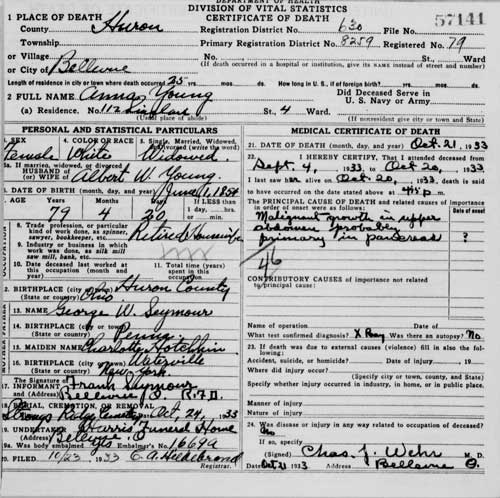 DEPARTMENT OF HEALTH
DIVISION OF VITAL STATISTICS
CERTIFICATE OF DEATH
57141
1 PLACE OF DEATH
County Huron Registration District No. 630 File No.
Township Primary Registration District No. 8259 Registered No. 79
or Village No. St. Ward
or City of Bellevue (If death occurred in a hospital or institution, give its NAME instead of street and number)
Length of residence in city or town where death occurred 25 yrs. mos. ds. How long in U. S., if of foreign birth? yrs. mos. ds.
2 FULL NAME Anna Young Did Deceased Serve in U. S. Navy or Army
(a) Residence. No. 112 St., 4 Ward.
(Usual place of abode) (If nonresident give city or town and State)
PERSONAL AND STATISTICAL PARTICULARS
3. SEX Female
4. COLOR OR RACE White
5. Single, Married, Widowed, or Divorced (write the word) Widowed
5a. If married, widowed, or divorced
HUSBAND of (or) WIFE of Albert W. Young
6. DATE OF BIRTH (month, day, and year) June 1, 1854
7. AGE Years 79 Months 4 Days 20 If LESS than 1 day, hrs. or min.
8. Trade, profession, or particular kind of work done, as spinner, sawyer, bookkeeper, etc. Retired Housewife
9. Industry or business in which work was done, as silk mill saw mill, bank, etc.
10. Date deceased last worked at this occupation (month and year)
11. Total time (years) spent in this occupation
12. BIRTHPLACE (city or town) Huron County
(State or country) Ohio
13. NAME George W. Seymour
14. BIRTHPLACE (city or town)
(State or country) Penna.
15. MAIDEN NAME Charlotte Hotchkin
16. BIRTHPLACE (city or town) Waterville
(State or country) New York
17. The Signature of INFORMANT Frank Seymour
and (Address) Bellevue O. R.F.D.
18. BURIAL, CREMATION, OR REMOVAL
Strongs Ridge Cemetery Oct. 24, 1933
19. UNDERTAKER Harris Funeral Home
(Address) Bellevue, O.
19a. Was body embalmed Yes Embalmer's No. 1669A
20. FILED 10/23, 1933 C. A. Hildebrand
Registrar.
MEDICAL CERTIFICATE OF DEATH
21. DATE OF DEATH (month, day, and year) Oct. 21, 1933
22. I HEREBY CERTIFY, That I attended deceased from
Sept. 4, 1933, to Oct 20, 1933
I last saw her alive on Oct 20, 1933, death is said
to have occurred on the date stated above at m.
The PRINCIPAL CAUSE OF DEATH and related causes of importance in order of onset were as follows: Date of onset
Malignant growth in upper
abdomen probably
primary in pancreas
46
CONTRIBUTORY CAUSES of importance not related to principal cause:
Name of operation Date of
What test confirmed diagnosis? X Ray Was there an autopsy? No
23. If death was due to external causes (violence) fill in also the following:
Accident, suicide, or homicide? Date of injury 19
Where did injury occur?
(Specify city or town, county, and State)
Specify whether injury occurred in industry, in home, or in public place.
Manner of injury
Nature of injury
24. Was disease or injury in any way related to occupation of deceased?
No
If so, specify
(Signed) Chas. J. Wehr M. D.
Date Oct 21 1933 Address Bellevue O.